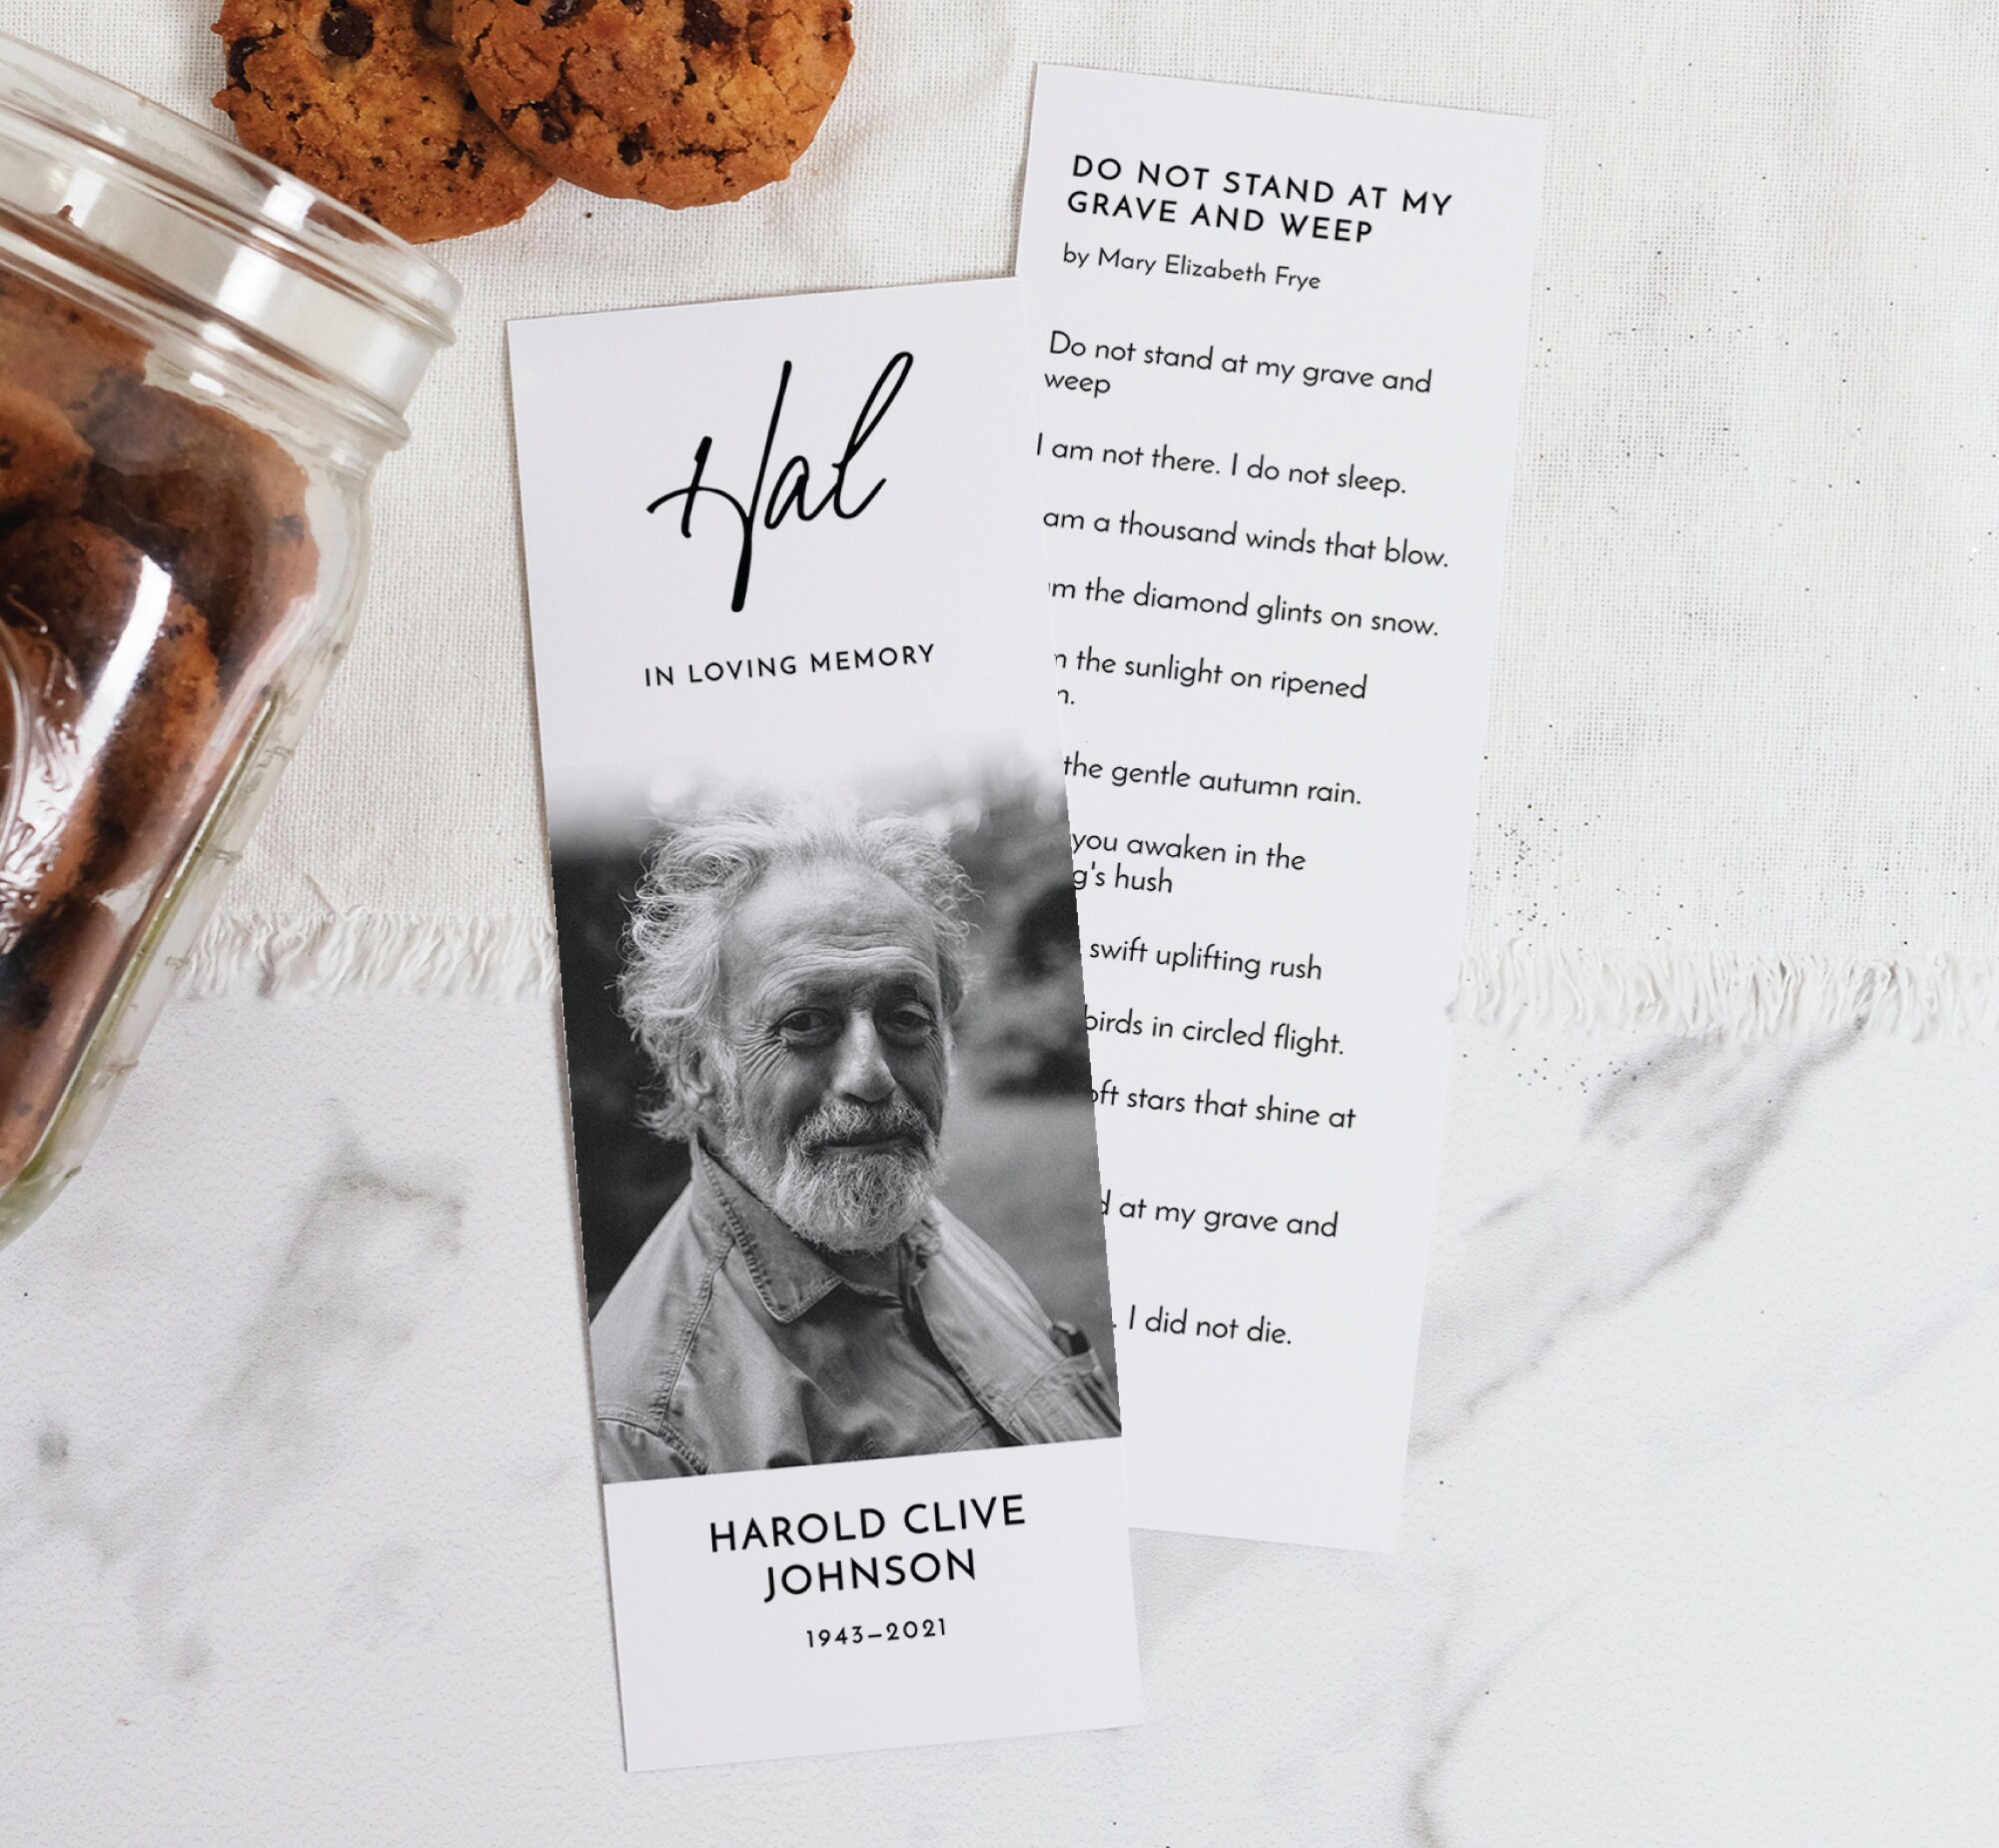 Hal
IN LOVING MEMORY
HAROLD CLIVE
JOHNSON
1943–2021
DO NOT STAND AT MY
GRAVE AND WEEP
by Mary Elizabeth Frye
Do not stand at my grave and
weep
I am not there. I do not sleep.
am a thousand winds that blow.
the diamond glints on snow.
the sunlight on ripened
the gentle autumn rain.
you awaken in the
hush
swift uplifting rush
birds in circled flight.
stars that shine at
at my grave and
I did not die.